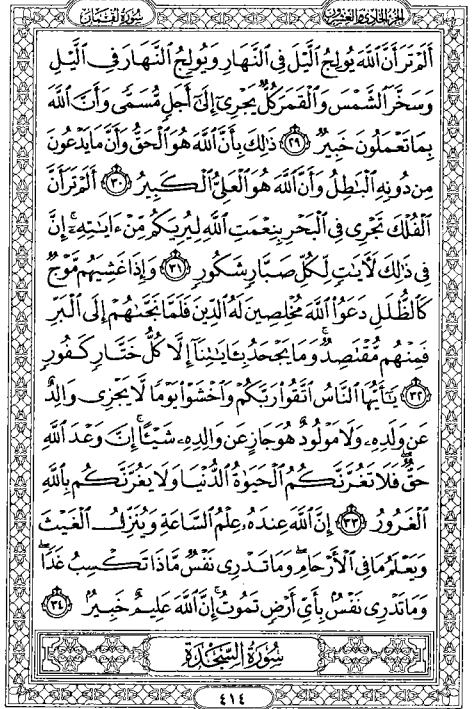 الجزء الحادي والعشرون سورة لقمان
أَلَمْ تَرَ أَنَّ ٱللَّهَ يُولِجُ ٱلَّيْلَ فِى ٱلنَّهَارِ وَيُولِجُ ٱلنَّهَارَ فِى ٱلَّيْلِ
وَسَخَّرَ ٱلشَّمْسَ وَٱلْقَمَرَ كُلٌّ يَجْرِىٓ إِلَىٰٓ أَجَلٍ مُّسَمًّى وَأَنَّ ٱللَّهَ
بِمَا تَعْمَلُونَ خَبِيرٌ ٢٩ ذَٰلِكَ بِأَنَّ ٱللَّهَ هُوَ ٱلْحَقُّ وَأَنَّ مَا يَدْعُونَ
مِن دُونِهِ ٱلْبَٰطِلُ وَأَنَّ ٱللَّهَ هُوَ ٱلْعَلِىُّ ٱلْكَبِيرُ ٣٠ أَلَمْ تَرَ أَنَّ
ٱلْفُلْكَ تَجْرِى فِى ٱلْبَحْرِ بِنِعْمَتِ ٱللَّهِ لِيُرِيَكُم مِّنْ ءَايَٰتِهِۦٓ ۚ إِنَّ
فِى ذَٰلِكَ لَءَايَٰتٍ لِّكُلِّ صَبَّارٍ شَكُورٍ ٣١ وَإِذَا غَشِيَهُم مَّوْجٌ
كَٱلظُّلَلِ دَعَوُا۟ ٱللَّهَ مُخْلِصِينَ لَهُ ٱلدِّينَ فَلَمَّا نَجَّىٰهُمْ إِلَى ٱلْبَرِّ
فَمِنْهُم مُّقْتَصِدٌ ۚ وَمَا يَجْحَدُ بِـَٔايَٰتِنَآ إِلَّا كُلُّ خَتَّارٍ كَفُورٍ
٣٢ يَٰٓأَيُّهَا ٱلنَّاسُ ٱتَّقُوا۟ رَبَّكُمْ وَٱخْشَوْا۟ يَوْمًا لَّا يَجْزِى وَالِدٌ
عَن وَلَدِهِۦ وَلَا مَوْلُودٌ هُوَ جَازٍ عَن وَالِدِهِۦ شَيْـًٔا ۚ إِنَّ وَعْدَ ٱللَّهِ
حَقٌّ ۖ فَلَا تَغُرَّنَّكُمُ ٱلْحَيَوٰةُ ٱلدُّنْيَا وَلَا يَغُرَّنَّكُم بِٱللَّهِ
ٱلْغَرُورُ ٣٣ إِنَّ ٱللَّهَ عِندَهُۥ عِلْمُ ٱلسَّاعَةِ وَيُنَزِّلُ ٱلْغَيْثَ
وَيَعْلَمُ مَا فِى ٱلْأَرْحَامِ ۖ وَمَا تَدْرِى نَفْسٌ مَّاذَا تَكْسِبُ غَدًا ۖ
وَمَا تَدْرِى نَفْسٌۢ بِأَىِّ أَرْضٍ تَمُوتُ ۚ إِنَّ ٱللَّهَ عَلِيمٌ خَبِيرٌۢ ٣٤
سُورَةُ السَّجْدَةِ
٤١٤